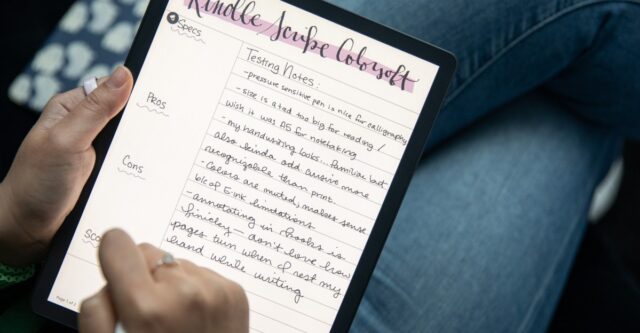 Kindle Scribe Colorsoft
Specs
Testing Notes:
-pressure sensitive pen is nice for calligraphy
-size is a tad too big for reading /
wish it was A5 for notetaking
Pros
-my handwriting looks... familiar but
also kinda odd cursive more
recognizable than print
Cons
-Colors are muted, makes sense
b/c of E-ink limitations
-annotating in ebooks is
finicky – don't love how
pages turn when I rest my
hand while writing
Page 1 of